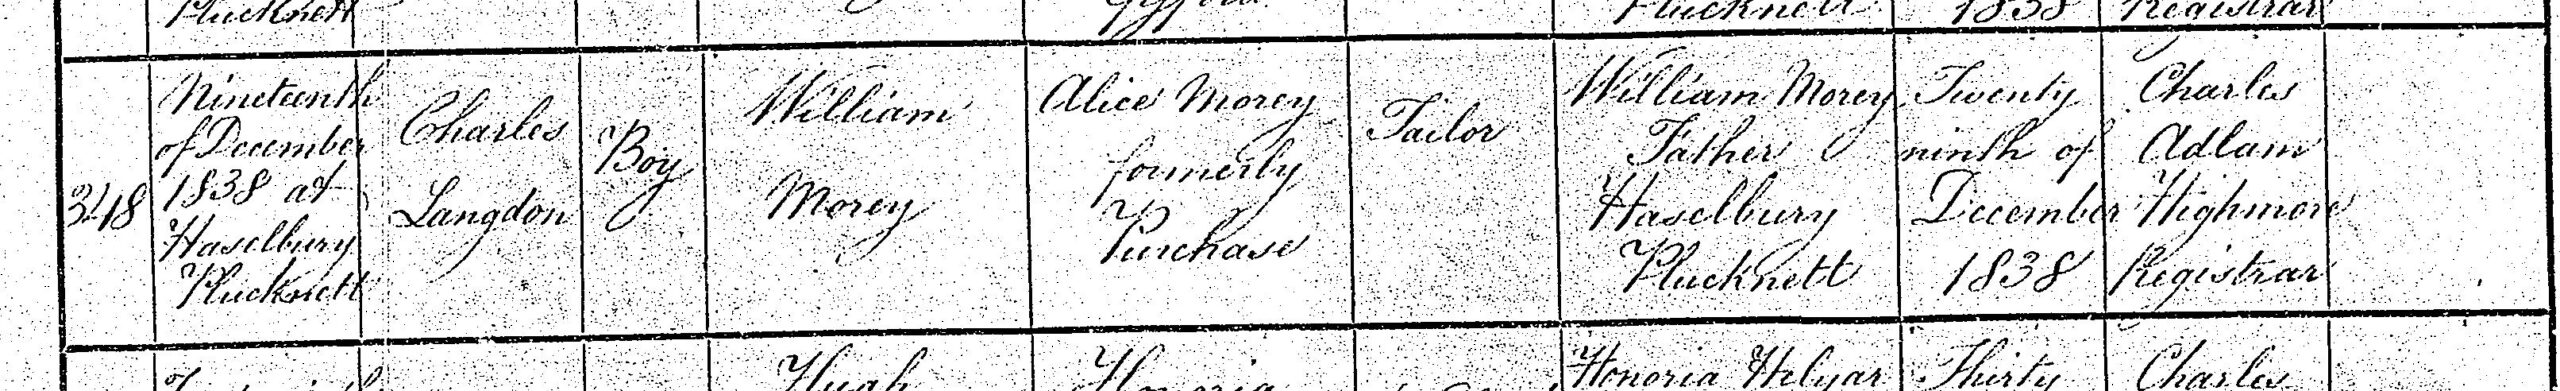 Plucknett
Gifford
Plucknett
1838
Registrar
348
Nineteenth
of December
1838 at
Haselbury
Plucknett
Charles
Langdon
Boy
William
Morey
Alice Morey
formerly
Purchase
Tailor
William Morey
Father
Haselbury
Plucknett
Twenty
ninth of
December
1838
Charles
Adlam
Highmore
Registrar
Hugh
Honoria
Honoria Helyar
Thirty
Charles